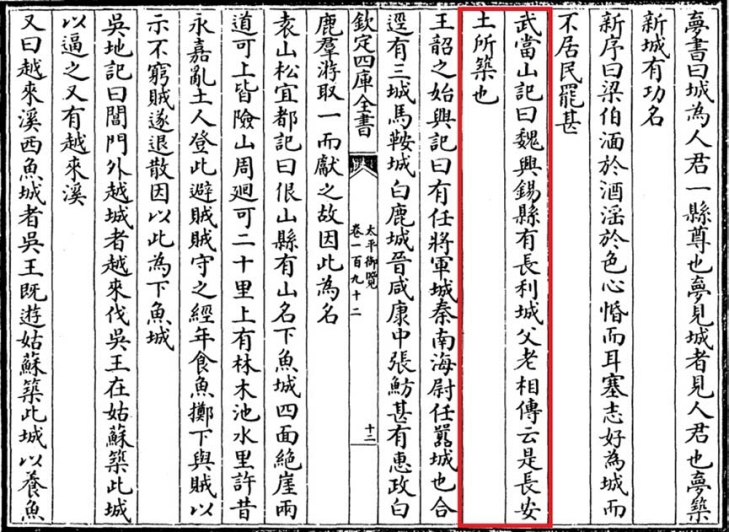 夢書曰城為人君一縣尊也夢見城者見人君也夢築
新城有功名
新序曰梁伯湎於酒淫於色心惛而耳塞志好為城而
不居民罷甚
武當山記曰魏興錫縣有長利城父老相傳云是長安
土所築也
王韶之始興記曰有任將軍城秦南海尉任嚻城也合
逕有三城馬鞍城白鹿城晉咸康中張魴甚有惠政白
欽定四庫全書
太平御覽
卷一百九十二
十二
鹿羣游取一而獻之故因此為名
袁山松宜都記曰佷山縣有山名下魚城四面絶崖兩
道可上皆險山周廻可二十里上有林木池水里許昔
永嘉亂土人登此避賊賊守之經年食魚擲下與賊以
示不窮賊遂退散因以此為下魚城
吳地記曰閶門外越城者越來伐吳王在姑蘇築此城
以逼之又有越來溪
又曰越來溪西魚城者吳王既遊姑蘇築此城以養魚